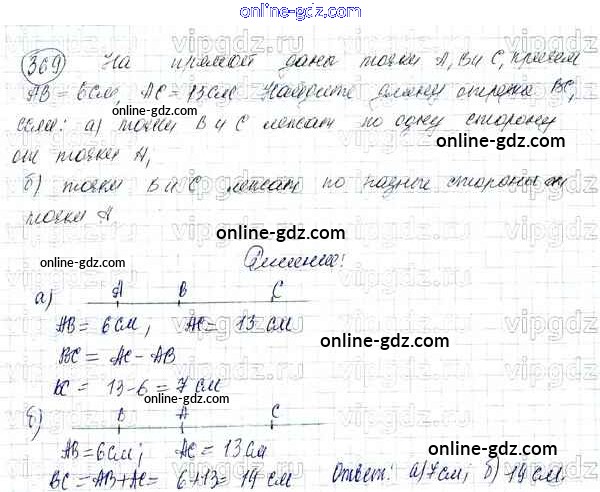 online-gdz.com
369 На прямой даны точки А, В и С, причём
АВ = 6 см, АС = 13 см Найдите длину отрезка ВС,
если: а) точки В и С лежат по одну сторону
online-gdz.com
от точки А,
б) точки В и С лежат по разные стороны от
online-gdz.com
точки А
online-gdz.com
Решение:
online-gdz.com
а) А В С
АВ = 6 см, АС = 13 см
online-gdz.com
ВС = АС - АВ
ВС = 13-6 = 7 см
online-gdz.com
online-gdz.com
б) В А С
online-gdz.com
АВ = 6 см; АС = 13 см
online-gdz.com
ВС = АВ + АС = 6+13 = 19 см Ответ: а) 7 см; б) 19 см.
online-gdz.com